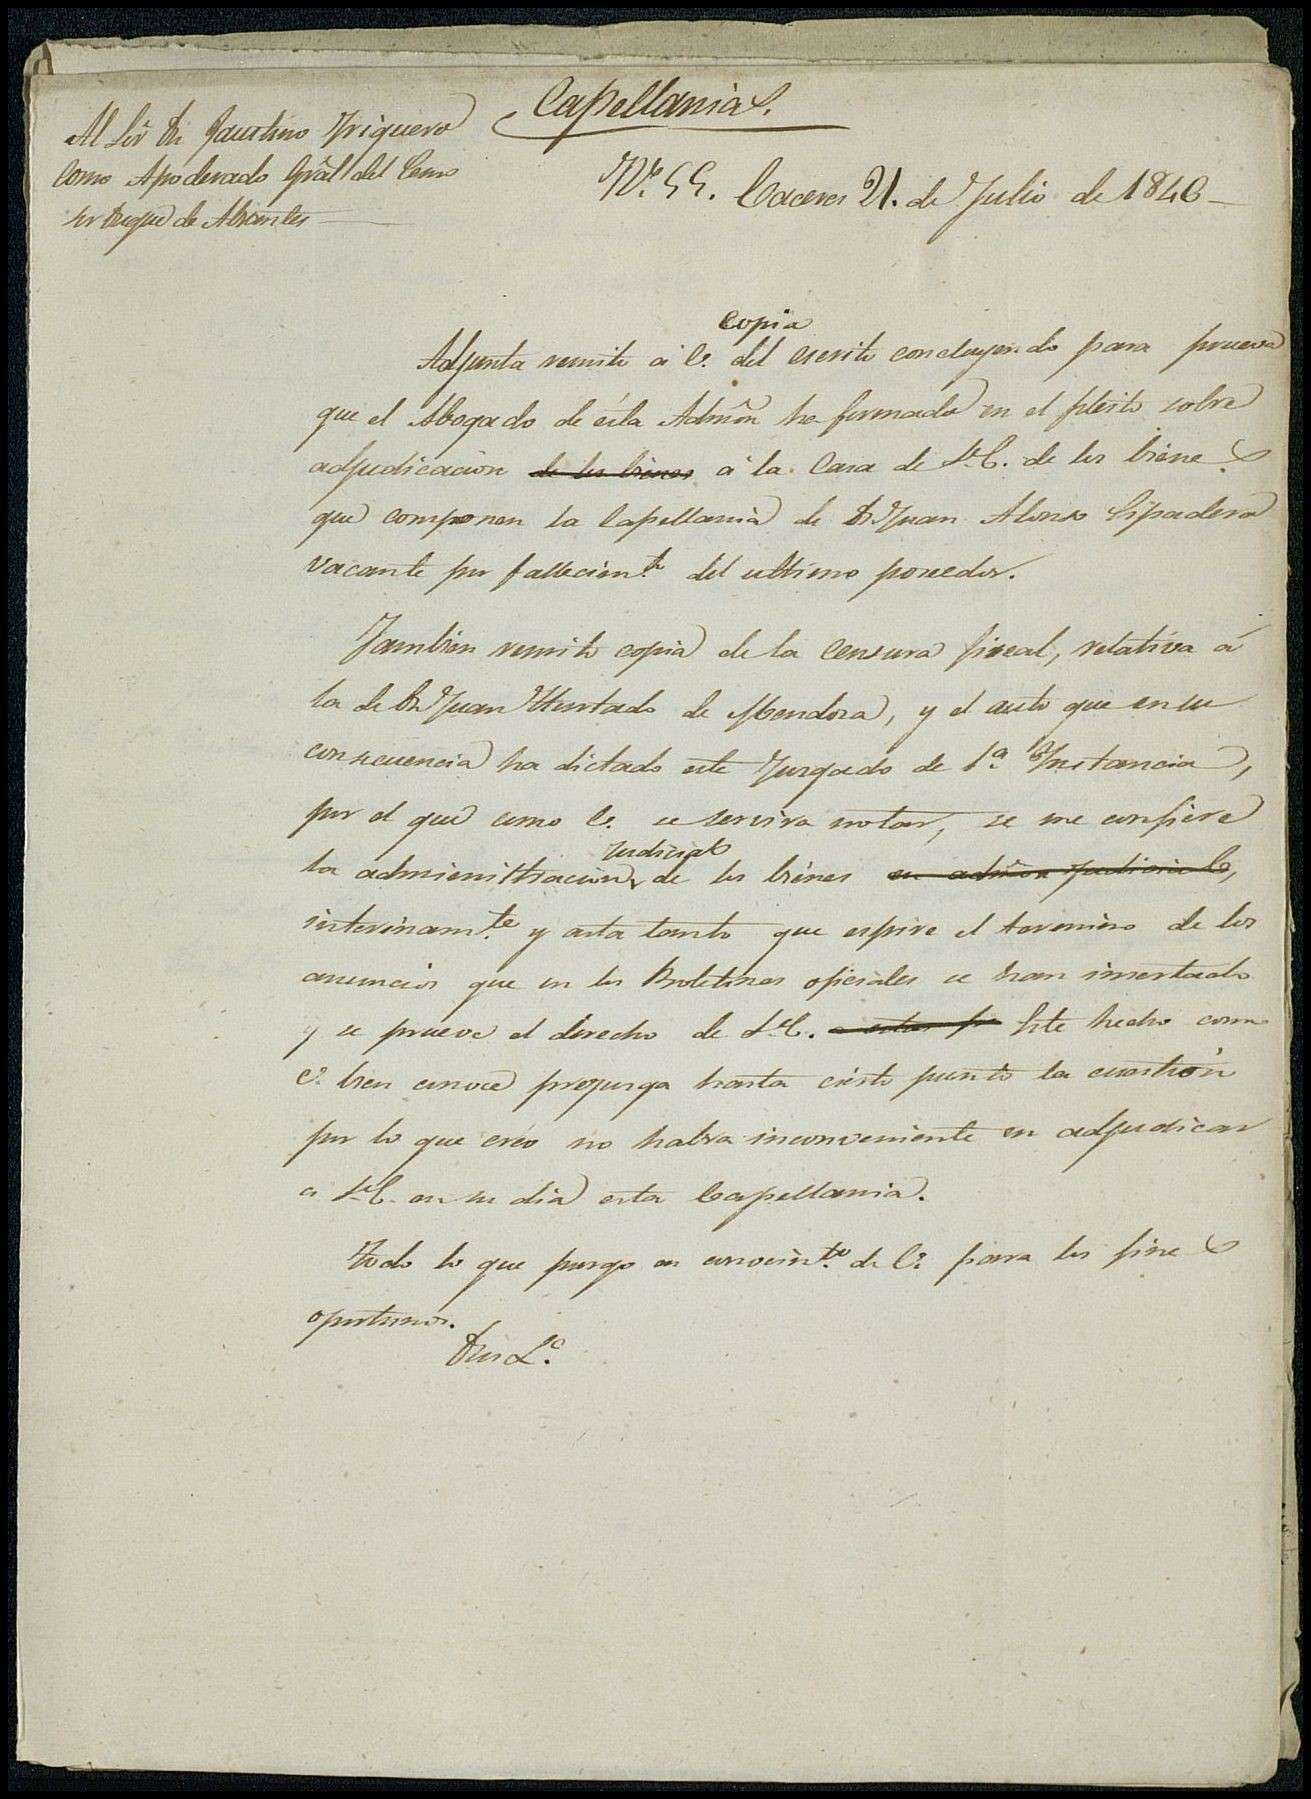 Capellanias.
Al Sor Dn Faustino Triguero
como Apoderado Gral del Exmo
Sr Duque de Abrantes
Nº. 55. Caceres 21. de Julio de 1846
copia
Adjunta remito á V. del escrito concluyendo para prueva
que el Abogado de ésta Admón ha formado en el pleito sobre
adjudicacion de los bienes á la Casa de S.E. de los bienes
que componen la Capellania de Dn Juan Alonso Espadero
vacante por fallecimto. del ultimo poseedor.
Tambien remito copia de la censura fiscal, relativa á
la de Dn Juan Hurtado de Mendoza, y el auto que en su
consecuencia ha dictado este Juzgado de 1ª. Instancia,
por el que como V. se servira notar, se me confiere
judicial
la administracion de los bienes en admón judicial,
interinamte. y asta tanto que espire el termino de los
anuncios que en los Boletines oficiales se han insertado
y se prueve el derecho de S.E. Este hecho como
V. bien conoce prejuzga hasta cierto punto la cuestión
por lo que creo no habra inconveniente en adjudicar
a S.E. en su dia esta Capellania.
Todo lo que pongo en conocimto. de V. para los fines
oportunos.
Dios &c.